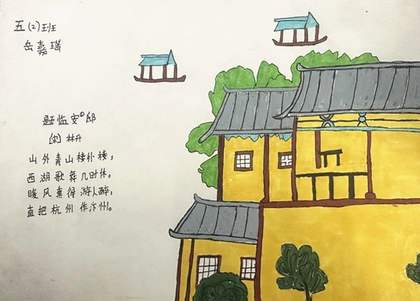 五(2)班
岳嘉
题临安邸
(宋) 林升
山外青山楼外楼,
西湖歌舞几时休,
暖风熏得游人醉,
直把杭州作汴州。